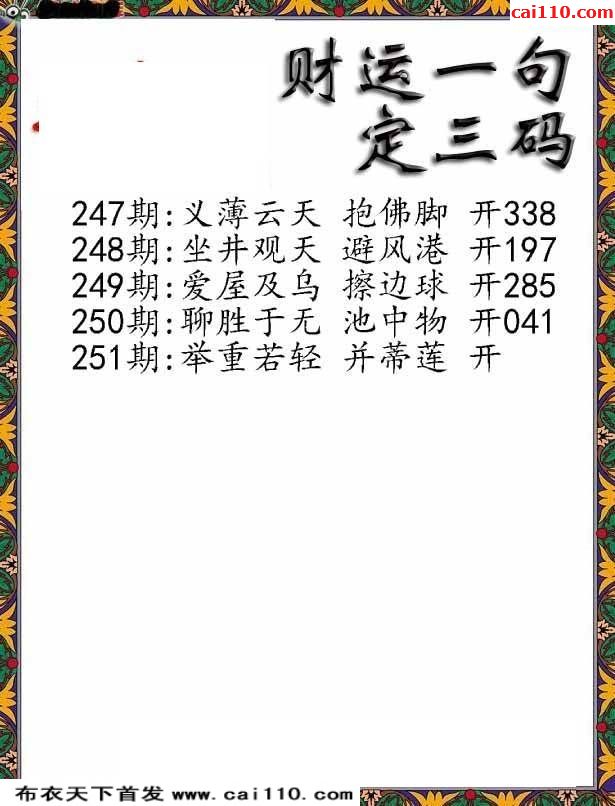 cai110.com
财运一句
定三码
247期:义薄云天 抱佛脚 开338
248期:坐井观天 避风港 开197
249期:爱屋及乌 擦边球 开285
250期:聊胜于无 池中物 开041
251期:举重若轻 并蒂莲 开
布衣天下首发 www.cai110.com